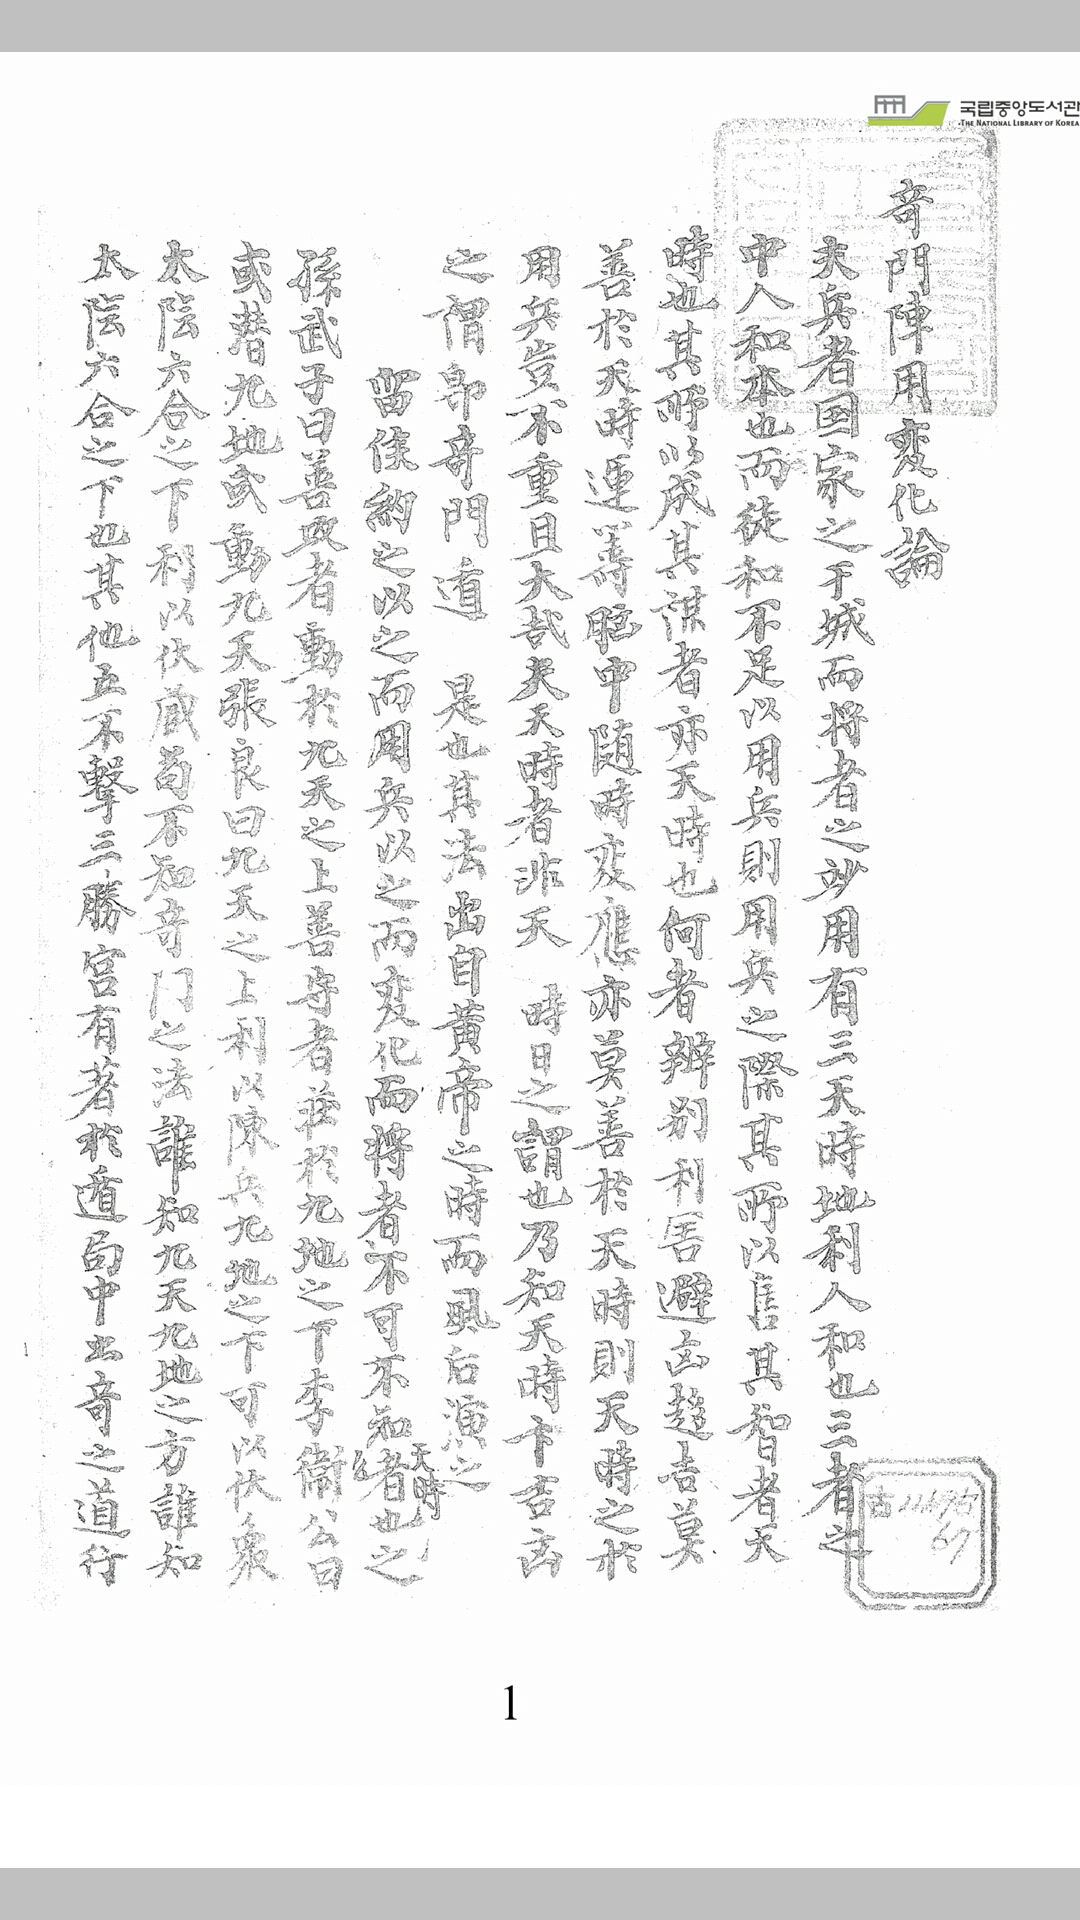 국립중앙도서관
THE NATIONAL LIBRARY OF KOREA
奇門陣用変化論
夫兵者国家之干城而将者之妙用有三天時地利人和也三者之
中人和本也而徒和不足以用兵則用兵之際其所以售其智者天
時也其所以成其謀者亦天時也何者辨别利害避凶趍吉莫
善於天時運籌胞中随時変應亦莫善於天時則天時之於
用兵豈不重且大哉夫天時者非天 時日之謂也乃知天時卞吉凶
之謂即奇門遁 是也其法出自黃帝之時而風后演之
留侯約之以之而周兵以之而変化而將者不可不知天時者也
孫武子曰善攻者動於九天之上善守者莊於九地之下李衛公曰
或潜九地或動九天張良曰九天之上利以陳兵九地之下可以伏衆
太陰六合之下利以伏藏苟不知奇门之法誰知九天九地之方誰知
太陰六合之下也其他五不擊三勝宮有著於遁局中出奇之道行
古
67
1